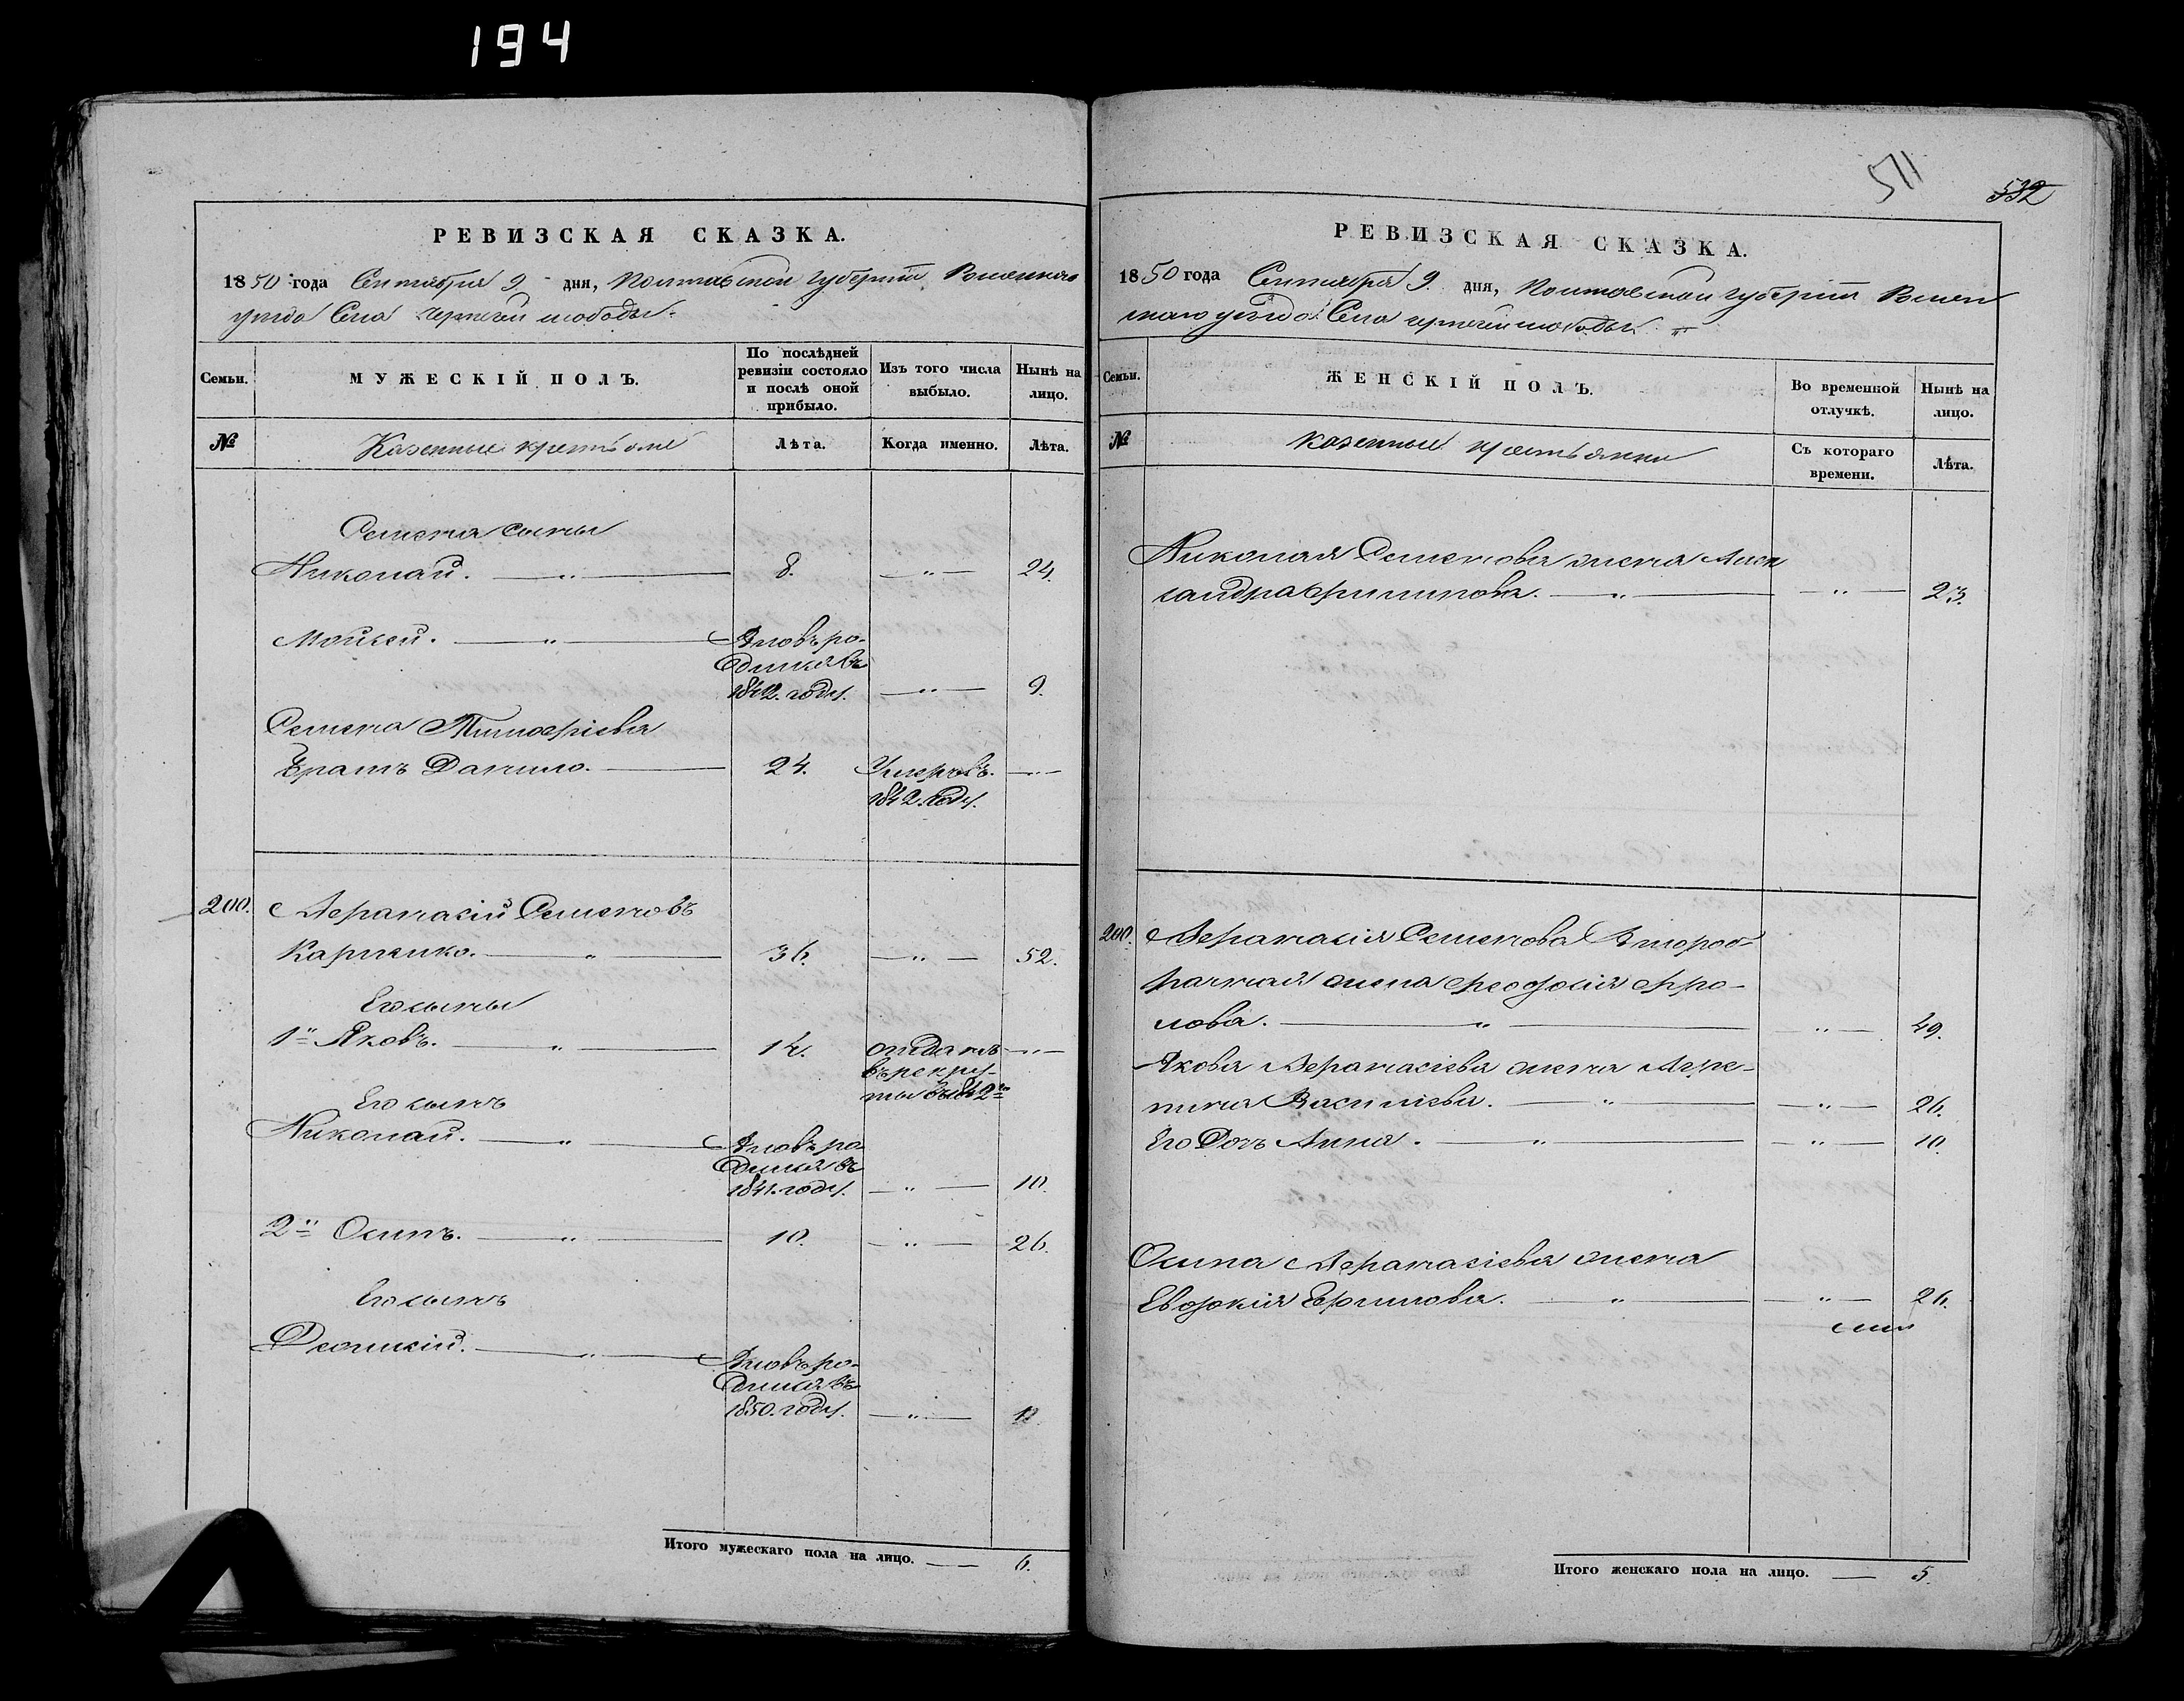 194
РЕВИЗСКАЯ СКАЗКА.
1850 года Сентября 9 дня, Полтавской губерніи Роменскаго
уезда Села Чернечей слободы.
Семьи.
МУЖЕСКІЙ ПОЛЪ.
По послѣдней
ревизіи состояло
и послѣ оной
прибыло.
Изъ того числа
выбыло.
Нынѣ на
лицо.
№
Казенные крестьяне
Лѣта.
Когда именно.
Лѣта.
Семена сыны
Николай. — „ — 8. — „ — 24.
Мойсей. — „ — Вновь ро-
дился въ
1842. году. — „ — 9.
Семена Тимофеіева
братъ Данило. — 24. Умеръ въ. — „ —
1842. году.
200. Афанасій Семеновъ
Карпенко. — „ — 36. — „ — 52.
Его сыны
1й Яковъ. — „ — 14. отданъ — „ —
въ рекру-
ты въ 842м
Его сынъ
Николай. — „ — Вновь ро-
дился въ
1841. году. — „ — 10.
2й Осипъ. — „ — 10. — „ — 26.
Его сынъ
— „ — Вновь ро-
дился въ
1850. году. — „ —
Итого мужескаго пола на лицо. — 6.
511
532
РЕВИЗСКАЯ СКАЗКА.
1850 года Сентября 9. дня, Полтавской губерніи Ромен
скаго уезда Села Чернечей слободы. „
Семьи.
ЖЕНСКІЙ ПОЛЪ.
Во временной
отлучкѣ.
Нынѣ на
лицо.
№
Казенные крестьянки
Съ котораго
времени.
Лѣта.
Николая Семенова жена Алек
сандра Филипова. — „ — — „ — 23.
200. Афанасія Семенова Второб-
рачная жена Феодосія Фро-
лова. — „ — — „ — 49.
Якова Афанасіева жена Агре-
пина Василіева. — „ — — „ — 26.
Его Дочь Анна. „ — — „ — 10.
Осипа Афанасіева жена
Евдокія Ефимова. — „ — — „ — 26.
Итого женскаго пола на лицо. — 5.